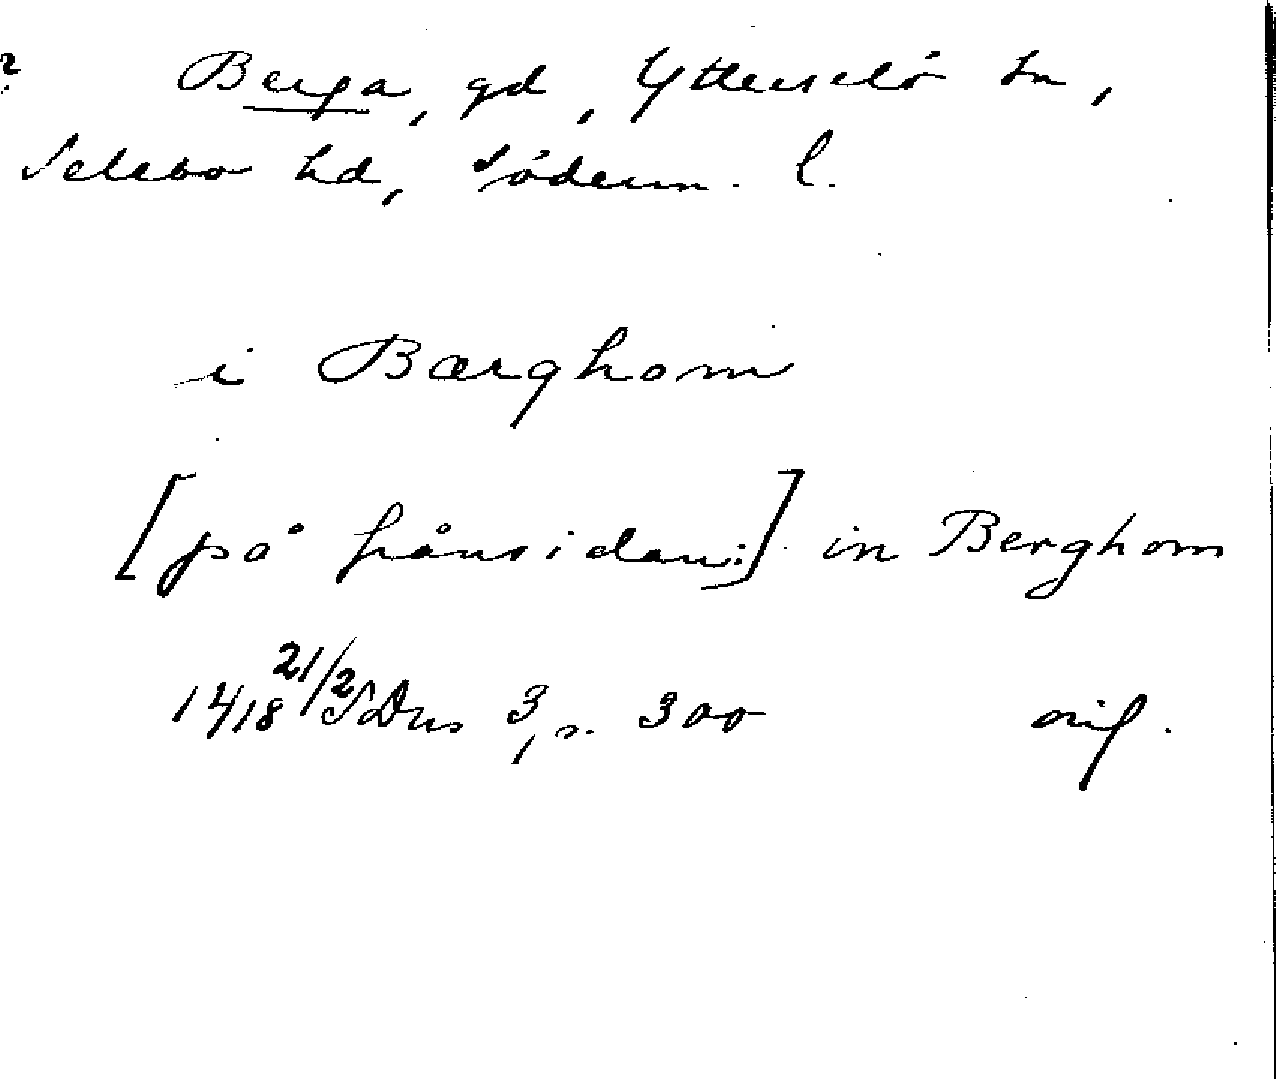 ? Berga, gd, Ytterselö sn,
Selebo hd, Söderm. l.
i Bærghom
[på frånsidan:] in Berghom
1418 21/2 SDns 3, s. 300 orig.